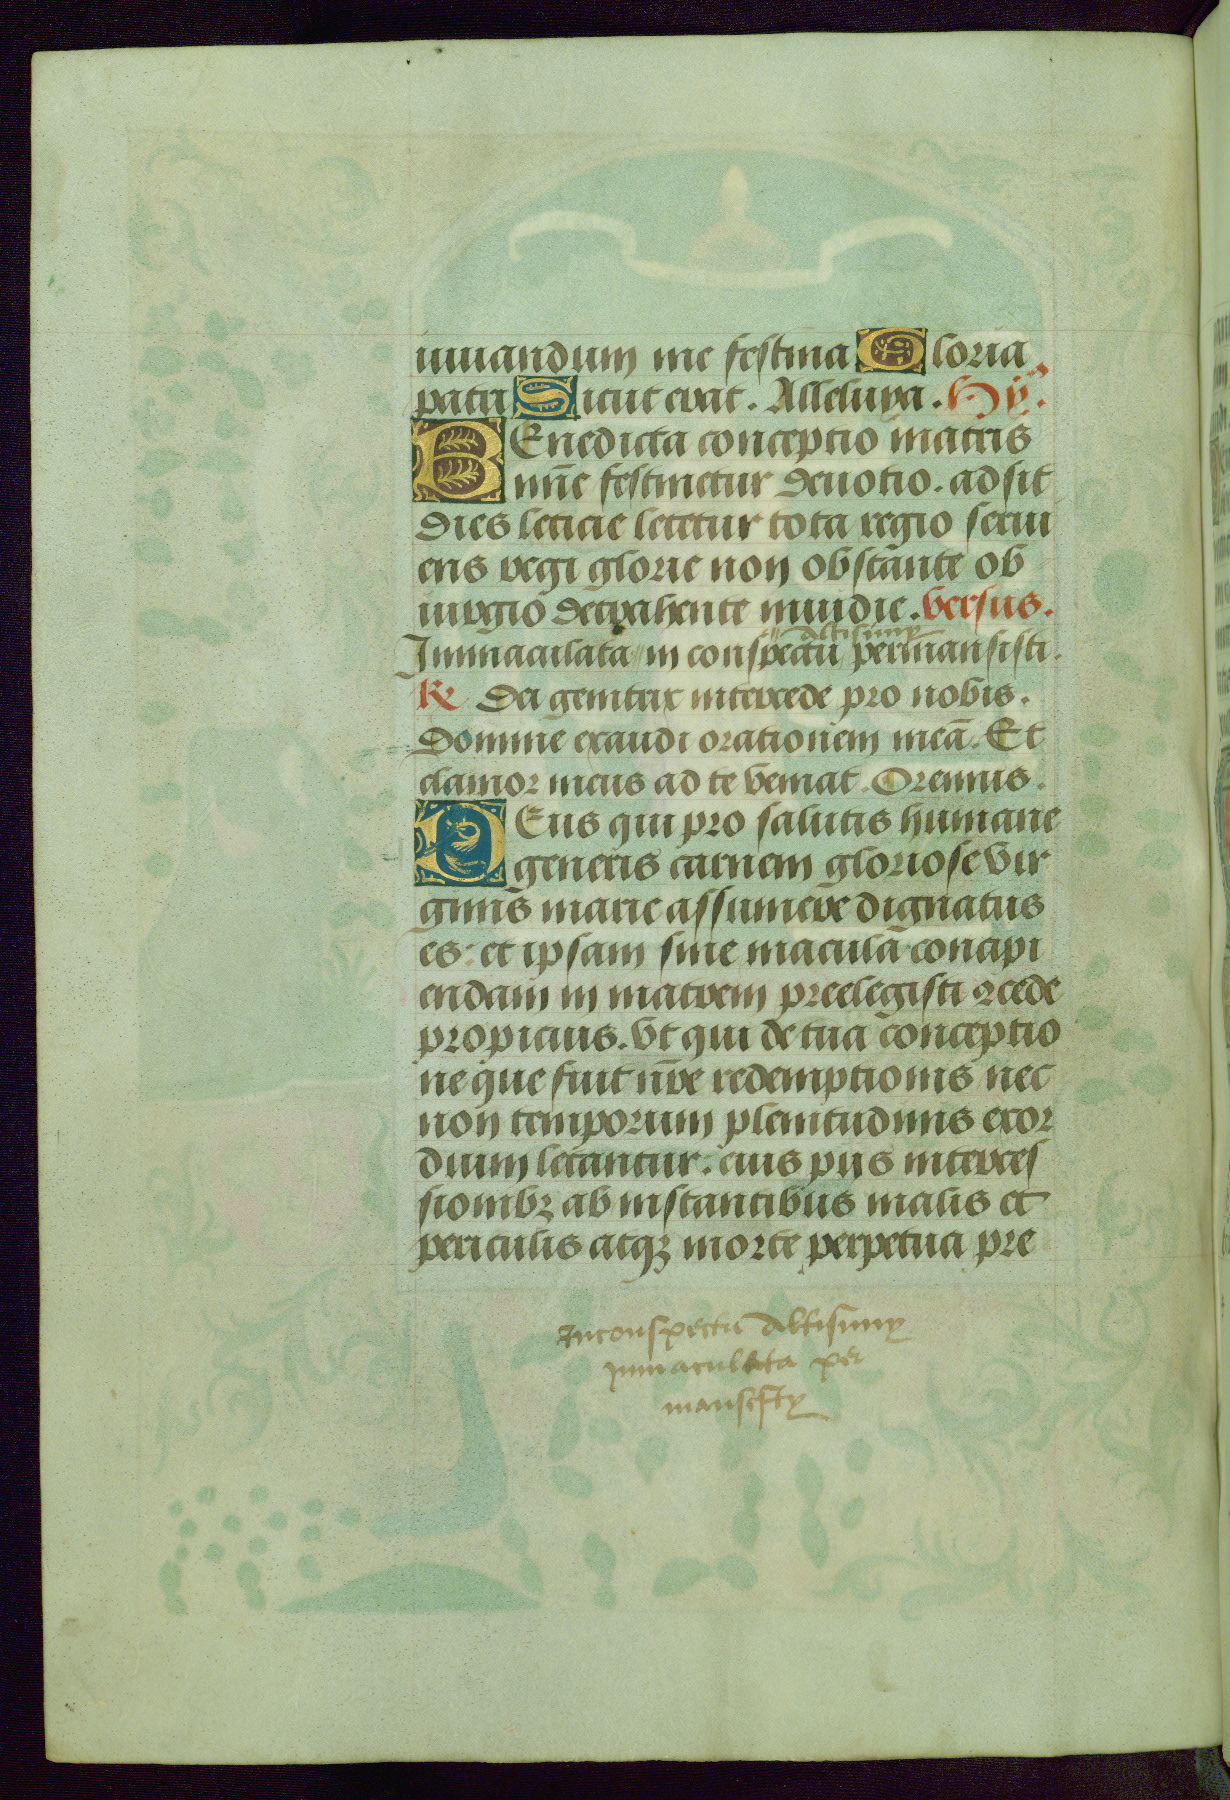 iuuandum me festina Gloria
patri Sicut erat. Alleluya. Hy̅.
BEnedicta conceptio matris
um̅e festinetur deuotio. adsit
dies leticie letetur tota regio serui
ens regi glorie non obstante ob
iurgio detrahente inuidie. versus.
altisimy
Immaculata in conspectu permansisti.
R Dei genitrix intercede pro nobis.
Domine exaudi orationem mea̅. Et
clamor meus ad te veniat. Oremus.
DEus qui pro salutis humane
generis carnem gloriose vir
ginis marie assumere dignatus
es: et ipsam sine macula concipi
endam in matrem preelegisti ꝯcede
propicius. vt qui de tua conceptio
ne que fuit nr̅e redemptionis nec
non temporum plenitudinis exor
dium letantur: eius piis interces
sionibꝫ ab instantibus malis et
periculis atqꝫ morte perpetua pre
Inconspectu Altisimy
ymmaculata per
mansisty